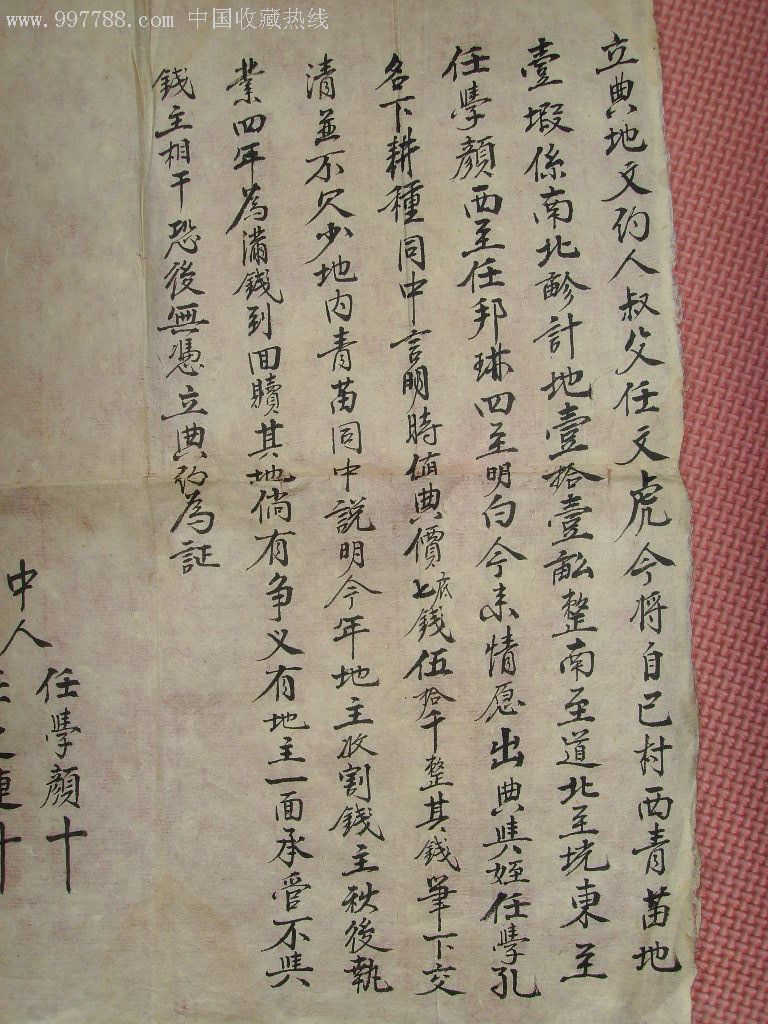 www.997788.com 中国收藏热线
立典地文约人叔父任文虎今将自己村西青苗地
壹塅係南北畛計地壹拾壹畝整南至道北至坑東至
任學顏西至任邦琳四至明白今来情愿出典與姪任學孔
名下耕種同中言明時值典價七底錢伍拾千整其錢筆下交
清並不欠少地内青苗同中説明今年地主收割錢主秋後執
業四年為滿錢到回贖其地倘有争义有地主一面承管不與
錢主相干恐後無憑立典约為証
中人
任學顏十